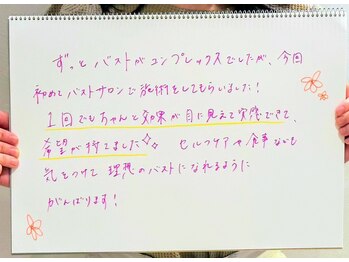 ずっと バストがコンプレックスでしたが、今回
初めてバストサロンで施術をしてもらいました!
1回でもちゃんと効果が目に見えて実感できて、
希望が持てました✨ セルフケアや食事なども
気をつけて理想のバストになれるように
がんばります!